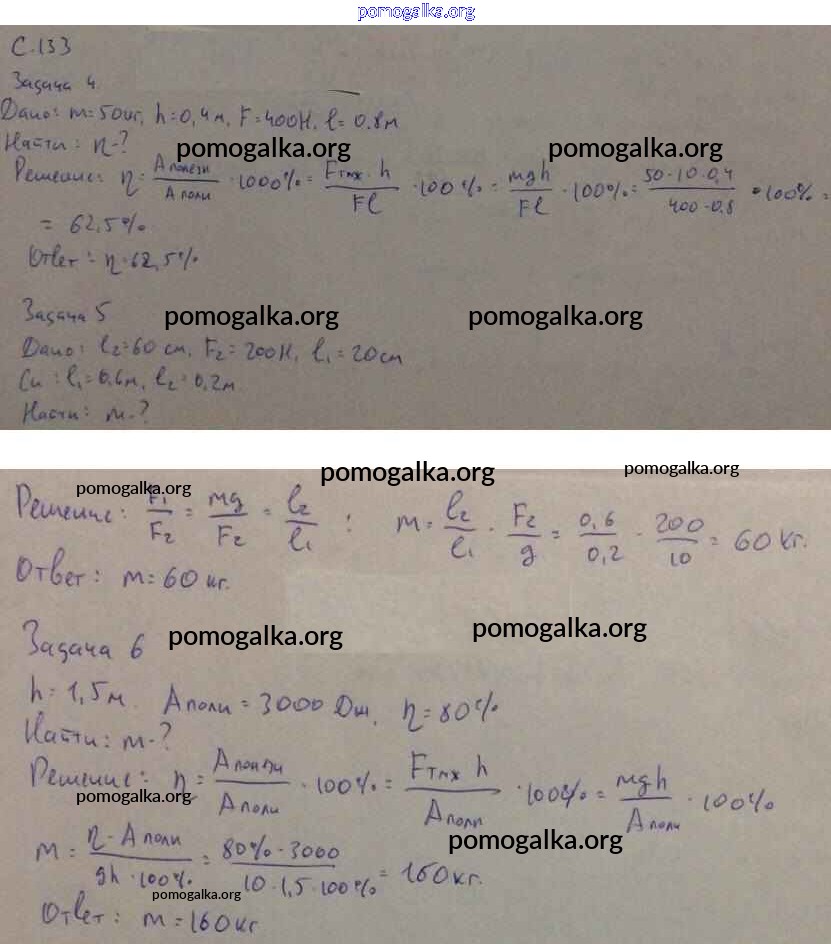 pomogalka.org
С.133
Задача 4
Дано: m=50кг, h=0,4м, F=400Н, l=0.8м
Найти: η-?
pomogalka.org pomogalka.org
Решение: η= Аполезн/Аполн ·1000%= Fтяж·h/Fl ·100%= mgh/Fl ·100%= 50·10·0,4/400·0.8 ·100%=
= 62,5%
Ответ: η=62,5%
Задача 5 pomogalka.org pomogalka.org
Дано: l2=60 см, F2=200Н, l1=20см
Си: l1=0,6м, l2=0,2м
Найти: m-?
pomogalka.org pomogalka.org
pomogalka.org
Решение: F1/F2 = mg/F2 = l2/l1 ; m= l2/l1 · F2/g = 0,6/0,2 · 200/10 = 60кг.
Ответ: m=60кг.
Задача 6 pomogalka.org pomogalka.org
h=1,5м. Аполн=3000 Дж, η=80%
Найти: m-?
Решение: η= Аполезн/Аполн ·100%= Fтяж h/Аполн ·100%= mgh/Аполн ·100%
pomogalka.org
pomogalka.org
m= η·Аполн/gh·100% = 80%·3000/10·1,5·100% = 160кг.
pomogalka.org
Ответ: m=160кг